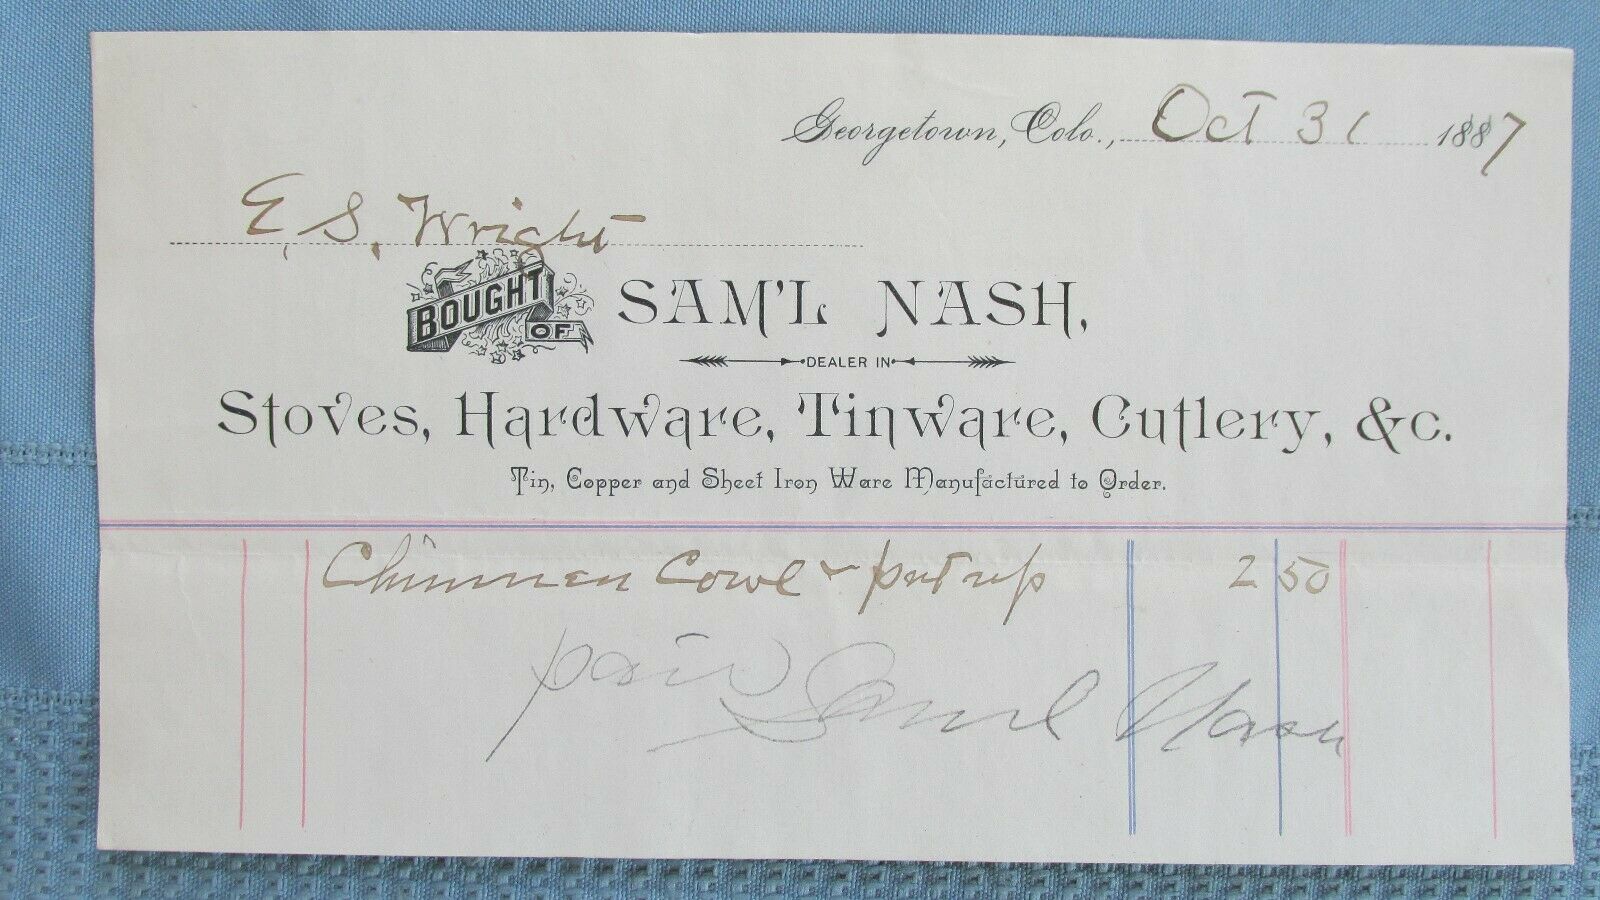 Georgetown, Colo., Oct 31 1887
E. S. Wright
BOUGHT OF SAM'L NASH,
DEALER IN
Stoves, Hardware, Tinware, Cutlery, &c.
Tin, Copper and Sheet Iron Ware Manufactured to Order.
Chimney Cowl & put up 2 50
paid Saml Nash